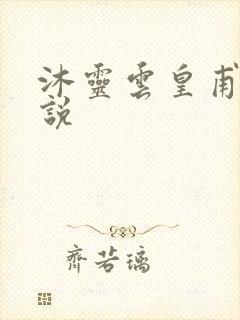 沐靈雲皇甫
說
齊若璃